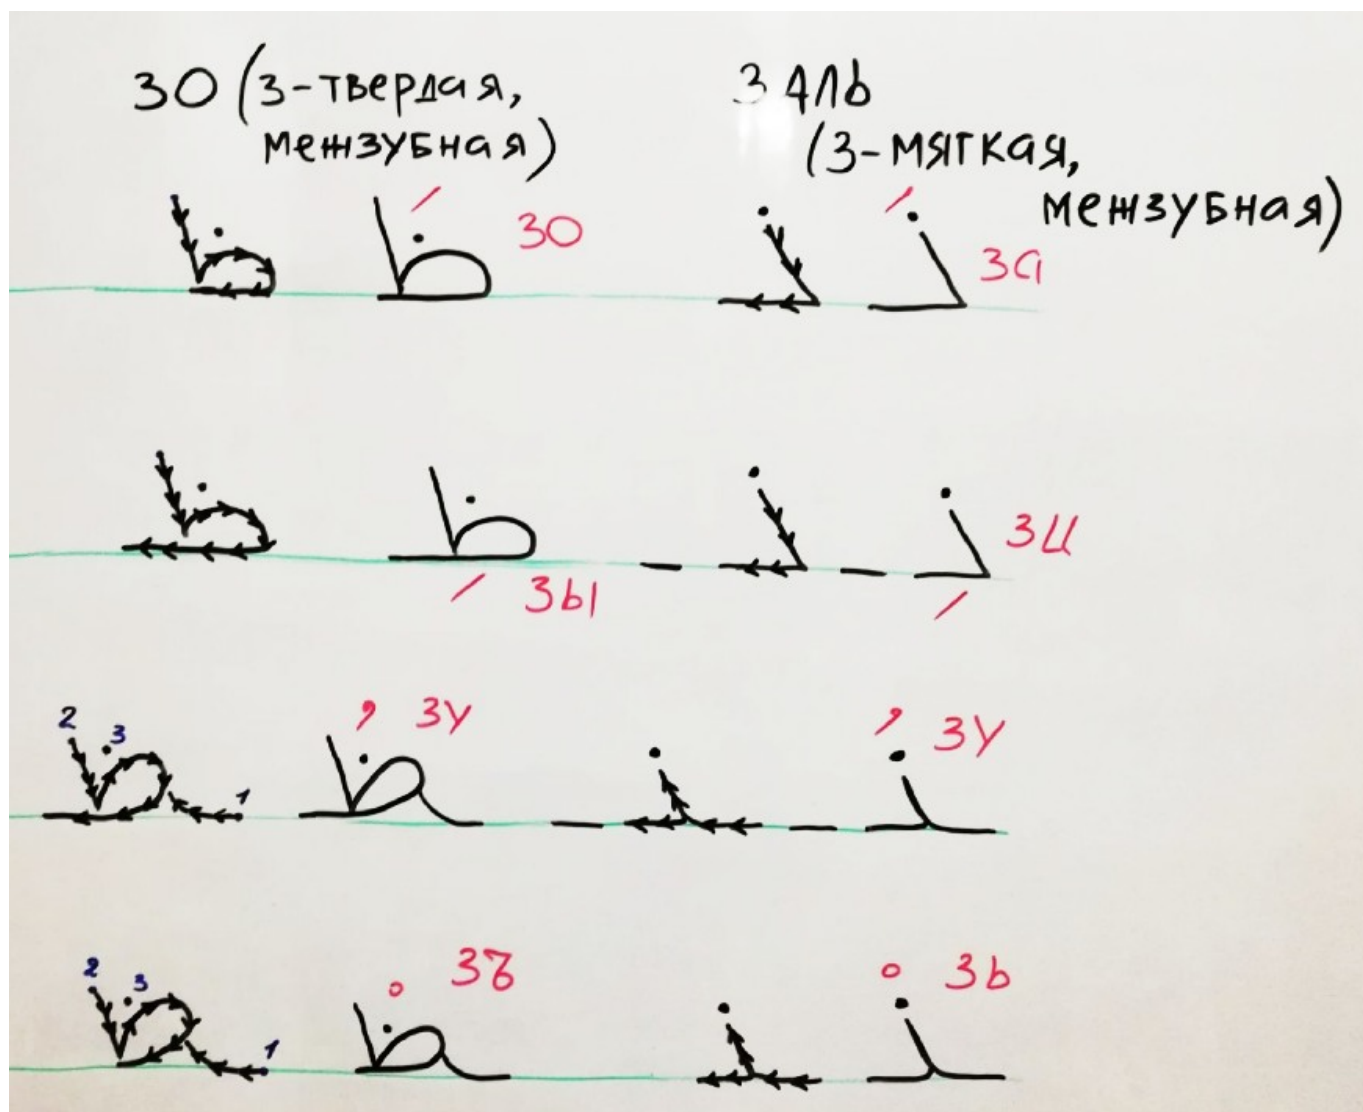 ЗО (З-твердая,
межзубная)
ЗАЛЬ
(З-мягкая,
межзубная)
ظ ظَ ЗО ذ ذَ За
ظ ظِ ЗЫ ذ ذِ ЗИ
2 3 1 ـظ ـظُ ЗУ ـذ ـذُ ЗУ
2 3 1 ـظ ـظْ ЗЪ ـذ ـذْ ЗЬ